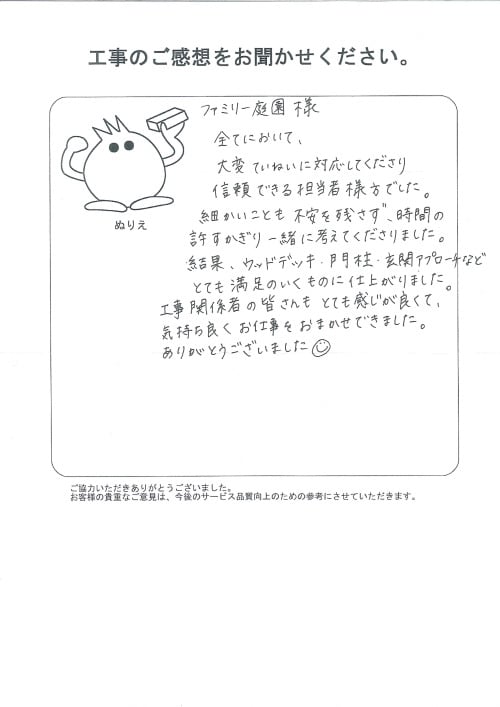 工事のご感想をお聞かせください。
ファミリー庭園 様
全てにおいて、
大変ていねいに対応してくださり
信頼できる担当者様方でした。
ぬりえ
細かいことも 不安を残さず、時間の
許すかぎり一緒に考えてくださりました。
結果、ウッドデッキ・門柱・玄関アプローチなど
とても 満足のいくものに仕上がりました。
工事関係者の皆さんも とても感じが良くて、
気持ち良く お仕事を おまかせできました。
ありがとうございました
ご協力いただきありがとうございました。
お客様の貴重なご意見は、今後のサービス品質向上のための参考にさせていただきます。